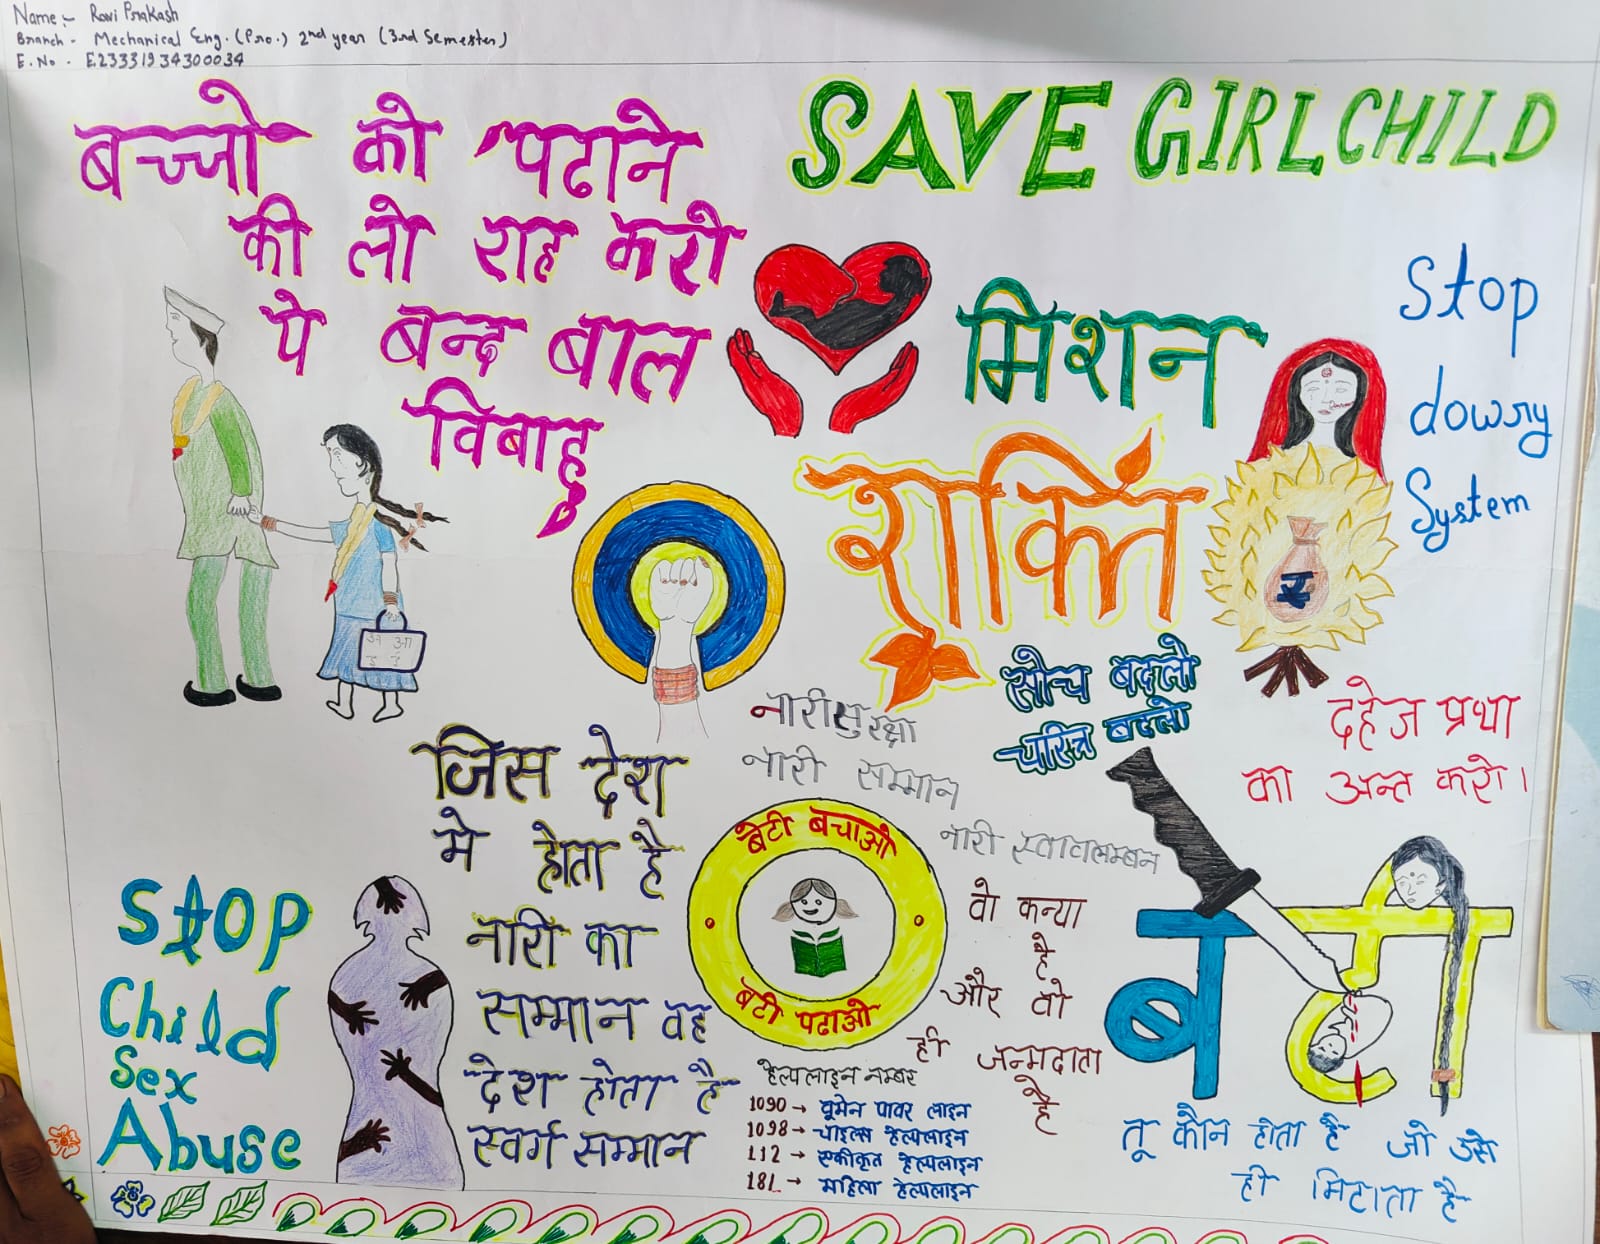 Name :- Ravi Prakash
Branch - Mechanical Eng. (Pro.) 2nd year (3rd Semester)
E. No. - E23331934300034
बच्जो को पढाने
की लो राह करो
ये बन्द बाल
विबाह
SAVE GIRL CHILD
मिशन
शक्ति
Stop
dowry
System
सोच बदलो
चरित्र बदलो
दहेज प्रथा
का अन्त करो।
अ आ
इ ई
नारी सुरक्षा
नारी सम्मान
नारी स्वावलम्बन
जिस देश
मे होता है
नारी का
सम्मान वह
देश होता है
स्वर्ग सम्मान
बेटी बचाओ
बेटी पढाओ
वो कन्या
है
और वो
ही जन्मदाता
है
Stop
Child
Sex
Abuse
हेल्पलाइन नम्बर
1090 → वूमेन पावर लाइन
1098 → चाइल्ड हेल्पलाइन
112 → एकीकृत हेल्पलाइन
181 → महिला हेल्पलाइन
बेटी
तू कौन होता है जो उसे
ही मिटाता है